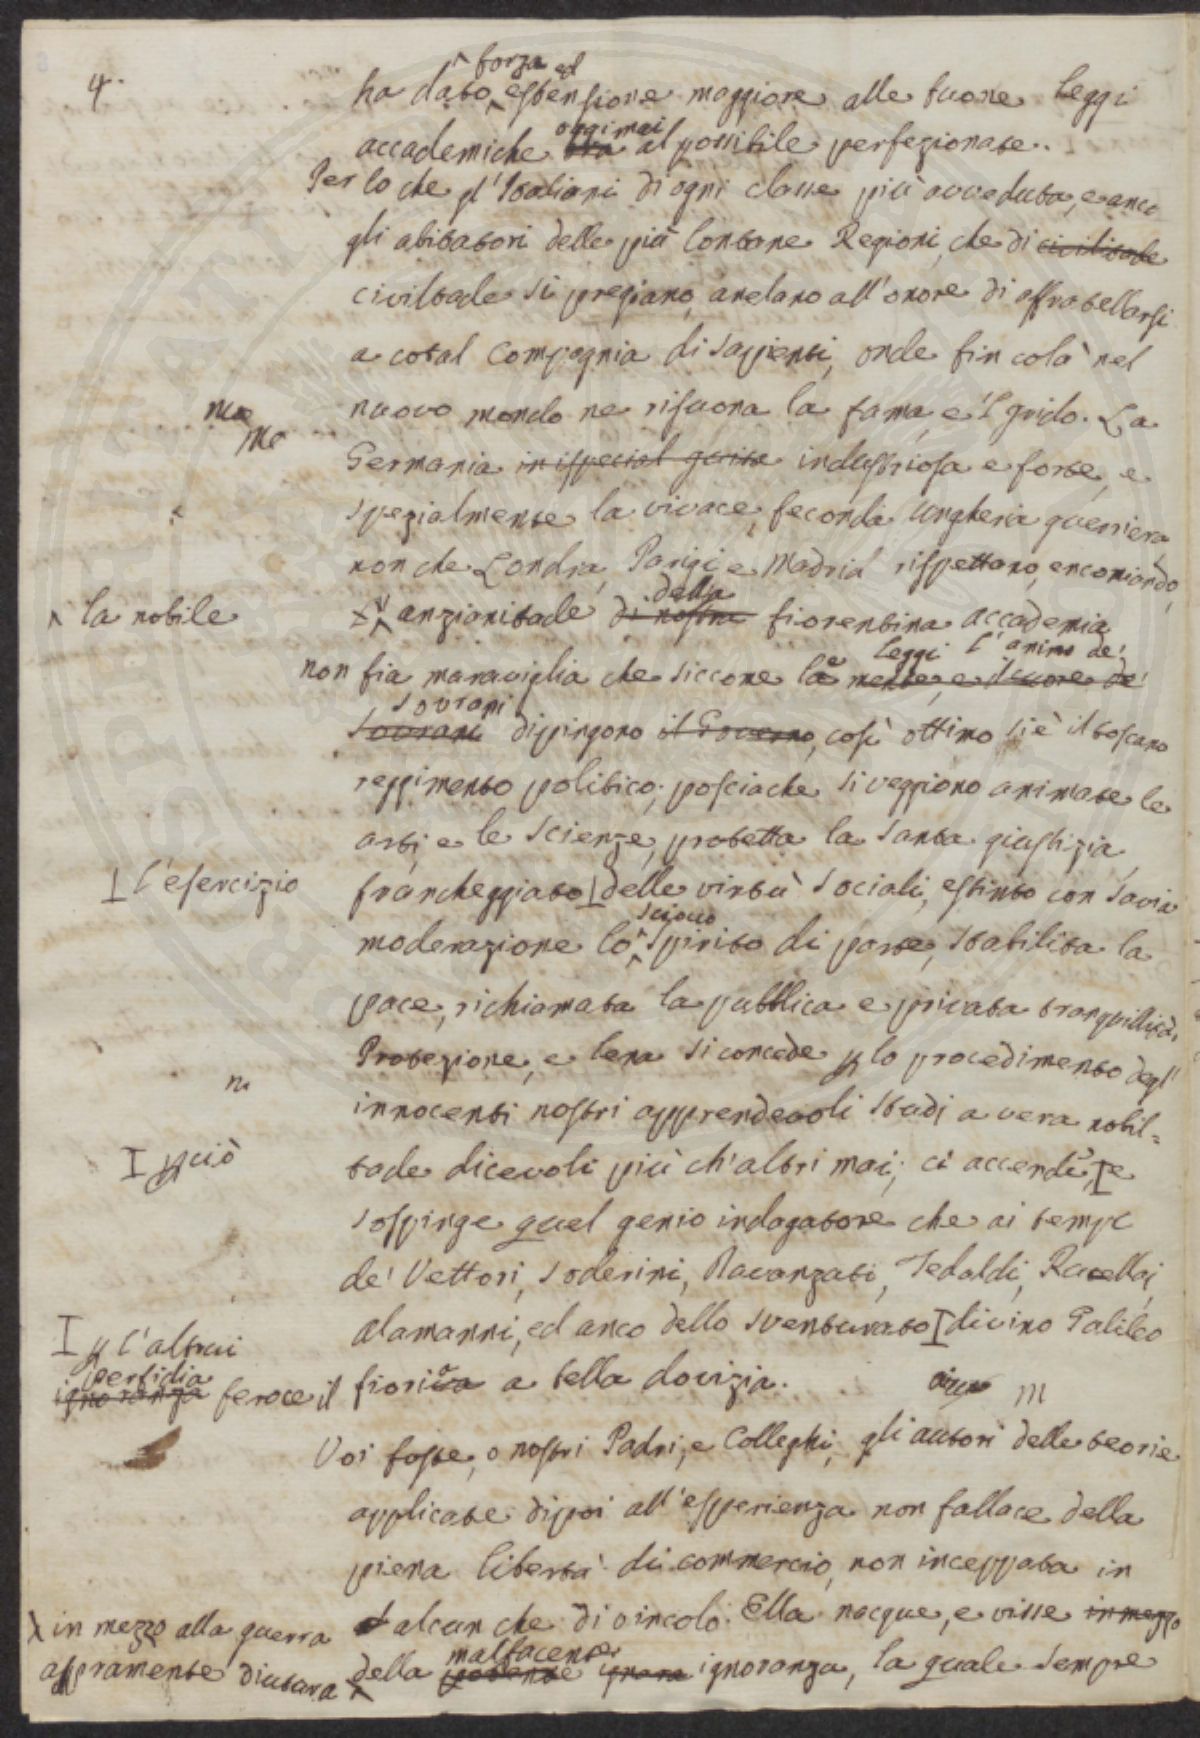 4.
^ forza ed
ha dato ^ estensione maggiore alle buone leggi
oggimai
accademiche ora al possibile perfezionate.
Per lo che gl'Italiani di ogni classe più avveduta, e anco
gli abitatori delle più lontane Regioni, che di civilitade
civiltade si pregiano, anelano all'onore di affratellarsi
a cotal Compagnia di Sapienti, onde fin colà nel
nuovo mondo ne risuona la fama, e 'l grido. La
Germania in ispecial guisa industriosa e forte, e
spezialmente la vivace, feconda Ungheria guerriera,
non che Londra, Parigi e Madrid rispettano, encomiando,
^ la nobile
^ anzianitade di nostra della fiorentina accademia
leggi l'animo de'
non fia maraviglia che siccome la mente, e il cuore de'
Sovrani
Sovrani dipingono il Governo, così ottimo si è il toscano
reggimento politico; posciache si veggiono animate le
arti, e le Scienze, protetta la Santa giustizia,
I l'esercizio
francheggiato I delle virtù Sociali, estinto con Savia
sciocco
moderazione lo ^ Spirito di parte, stabilita la
pace, richiamata la pubblica e privata tranquillità.
Protezione, e lena si concede p lo procedimento degl'
innocenti nostri apprendevoli studi a vera nobil=
I p ciò
tade dicevoli più ch'altri mai; ci accende, I e
sospinge quel genio indagatore che ai tempi
de' Vettori, Soderini, Davanzati, Tedaldi, Rucellai,
Alamanni, ed anco dello sventurato I divino Galileo
I p l'altrui
perfidia
ignoranza feroce il
fioriva a bella dovizia.
Voi foste, o nostri Padri, e Colleghi, gli autori delle teorie
applicate dipoi all'esperienza non fallace della
piena libertà di commercio, non inceppata in
alcun che di vincolo. Ella nacque, e visse in mezzo
X in mezzo alla guerra
aspramente diutura
malfacente
della potente ignara ignoranza, la quale sempre